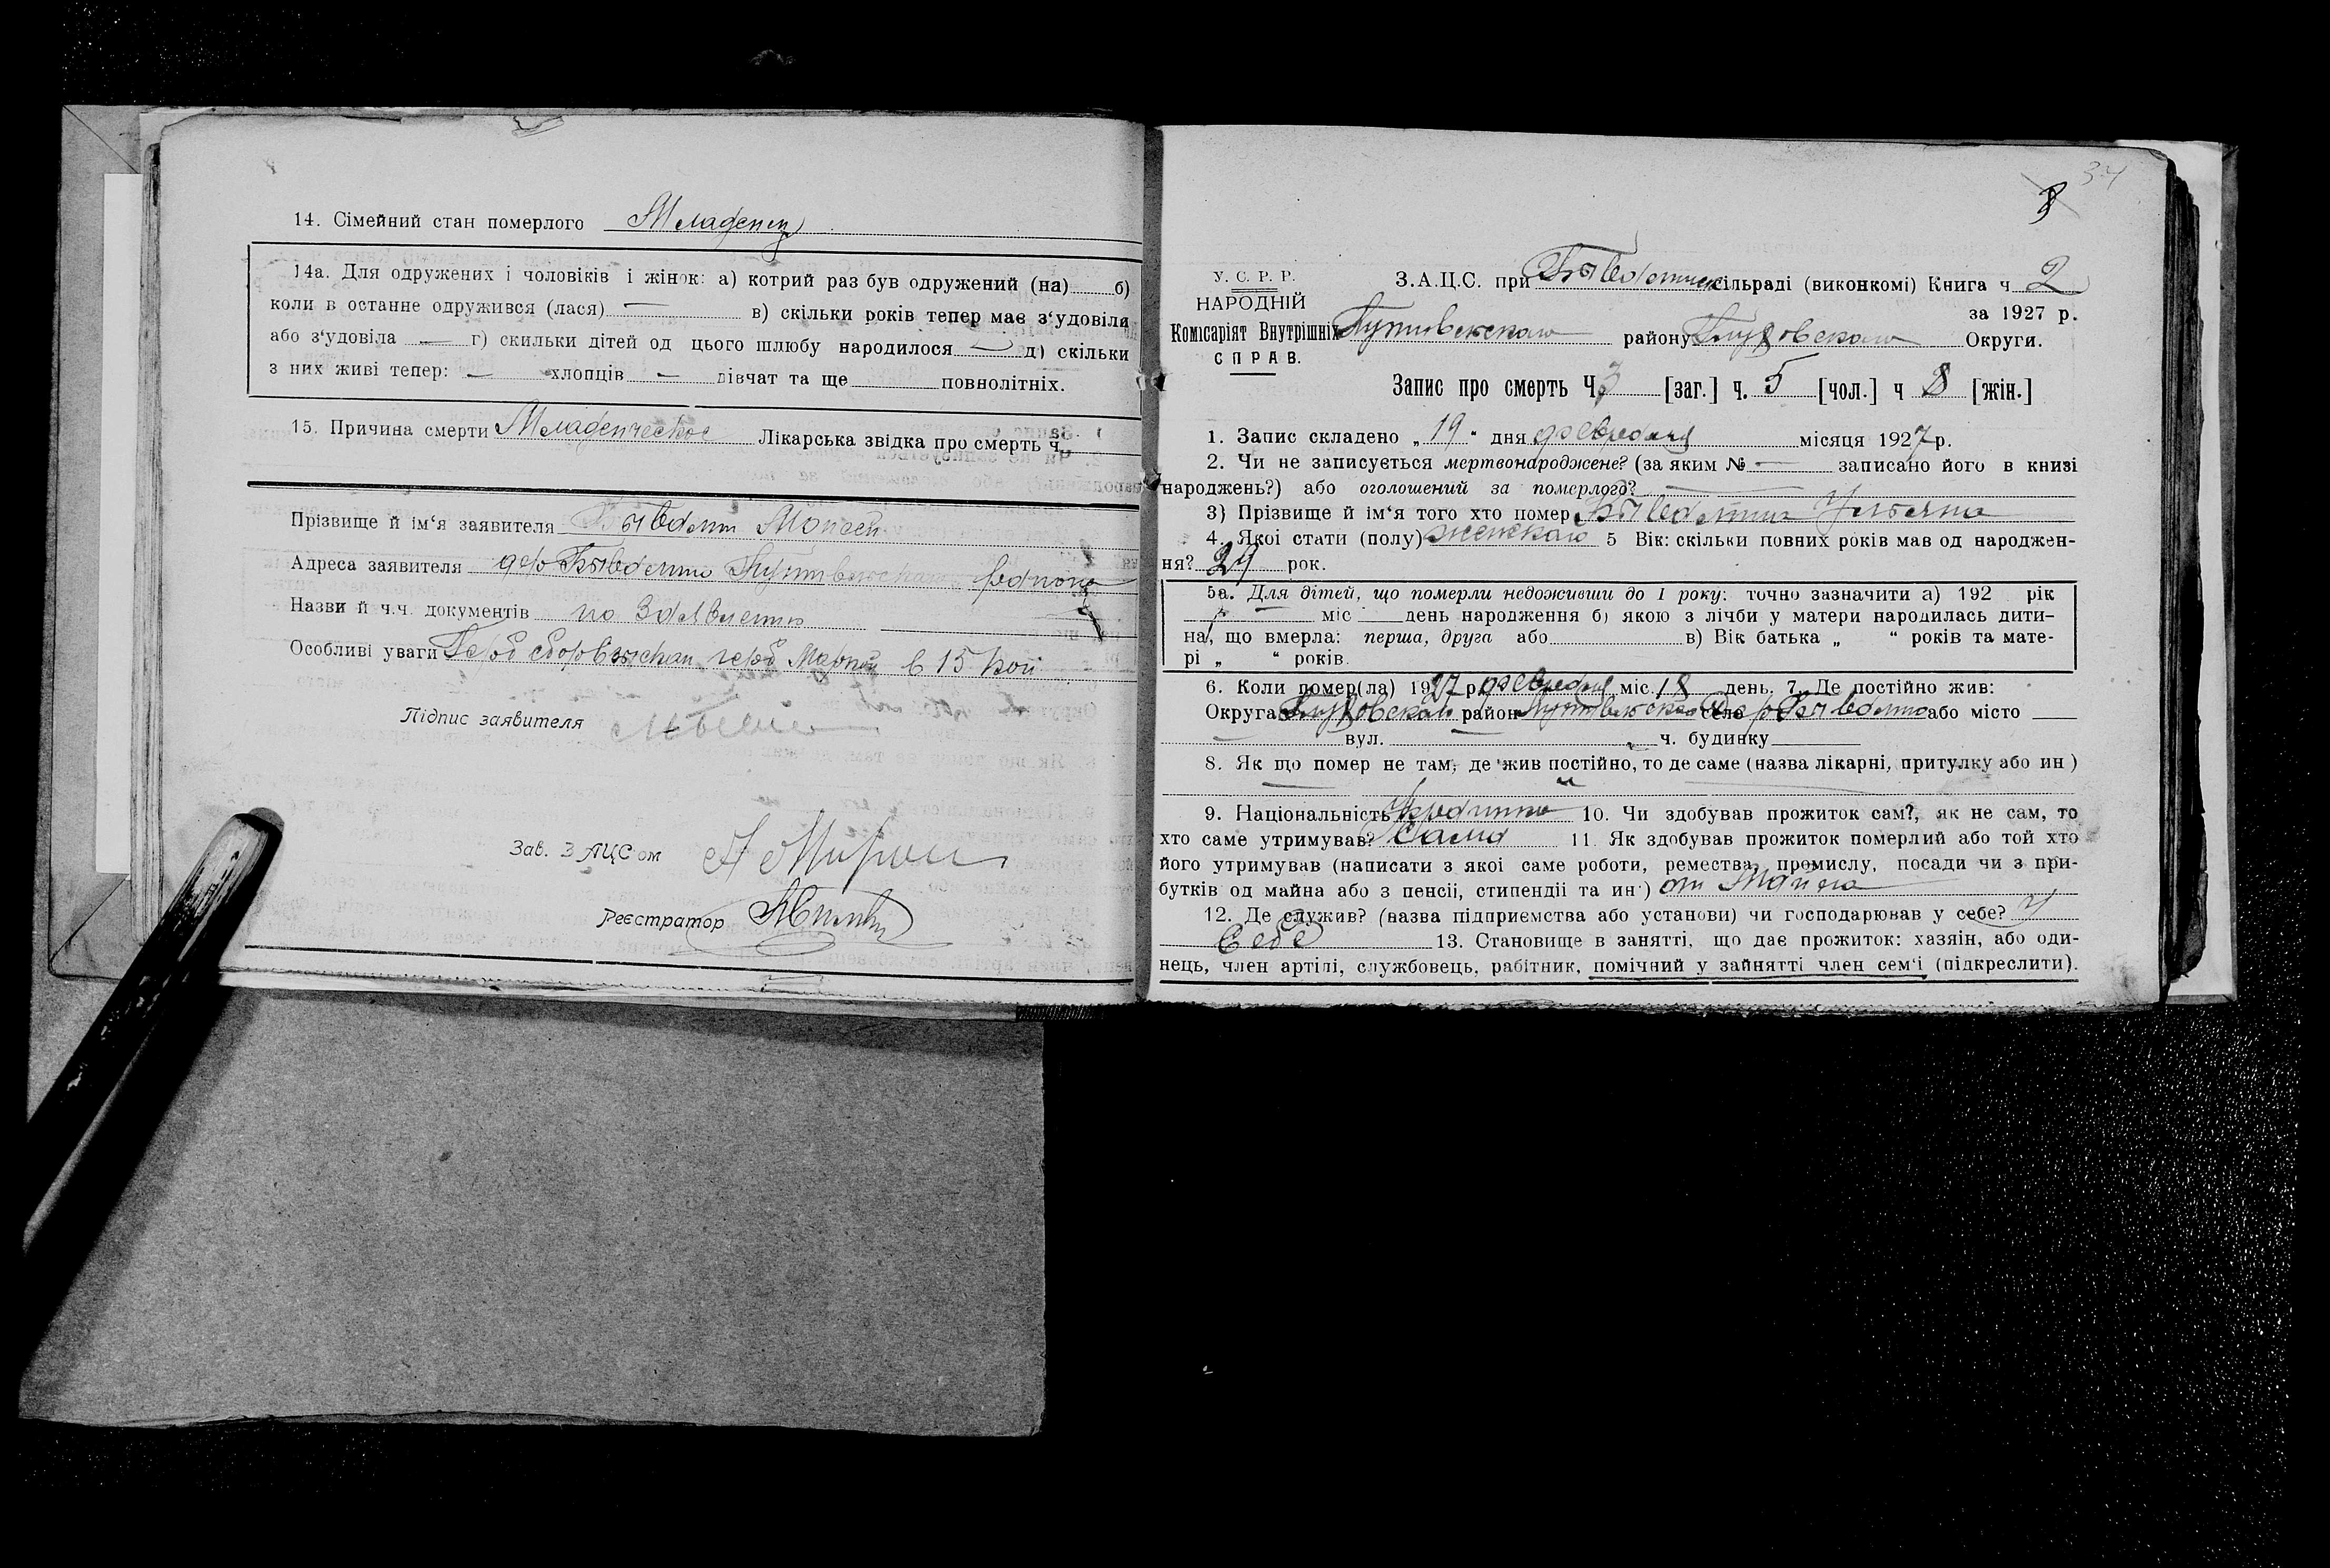 14. Сімейний стан померлого Младенец
14а. Для одружених і чоловіків і жінок: а) котрий раз був одружений (на) б)
коли в останне одружився (лася) — в) скільки років тепер має з'удовіла
або з'удовіла — г) скильки дітей од цього шлюбу народилося — д) скільки
з них живі тепер: — хлопців — дівчат та ще повнолітніх.
15. Причина смерти Младенческое Лікарська звідка про смерть ч.
Прізвище й ім'я заявителя Моисей
Адреса заявителя
Назви й ч.ч. документів по
Особливі уваги Герб сбор герб Маркой в 15 коп
Підпис заявителя
Зав. ЗАЦСом
Реєстратор
34
8
У. С. Р. Р.
НАРОДНІЙ
Комісаріят Внутрішніх
СПРАВ.
З.А.Ц.С. при сільраді (виконкомі) Книга ч 2
за 1927 р.
Путивльского району Глуховского Округи.
Запис про смерть Ч. 3 [заг.] ч. 5 [чол.] ч 8 [жін.]
1. Запис складено „19" дня февраля місяця 1927 р.
2. Чи не записується мертвонароджене? (за яким № — записано його в книзі
народжень?) або оголошений за померлого? —
3) Прізвище й ім'я того хто помер Ульяна
4. Якоі стати (полу) женскаго 5 Вік: скільки повних років мав од народжен-
ня? 29 рок.
5а. Для дітей, що померли недоживши до 1 року: точно зазначити а) 192 рік
— міс день народження б) якою з лічби у матери народилась дити-
на, що вмерла: перша, друга або в) Вік батька „ " років та мате-
рі „ " років.
6. Коли помер(ла) 1927 р. февраля міс. 18 день. 7. Де постійно жив:
Округа Глуховского район Путивльского село або місто —
— вул. — ч. будинку
8. Як що помер не там, де жив постійно, то де саме (назва лікарні, притулку або ин )
9. Національність 10. Чи здобував прожиток сам?, як не сам, то
хто саме утримував? Сама 11. Як здобував прожиток померлий або той хто
його утримував (написати з якоі саме роботи, ремества, промислу, посади чи з при-
бутків од майна або з пенсіі, стипендіі та ин ) от
12. Де служив? (назва підприємства або установи) чи господарював у себе? У
Себе 13. Становище в занятті, що дає прожиток: хазяін, або оди-
нець, член артілі, службовець, рабітник, помічний у зайнятті член сем'і (підкреслити).